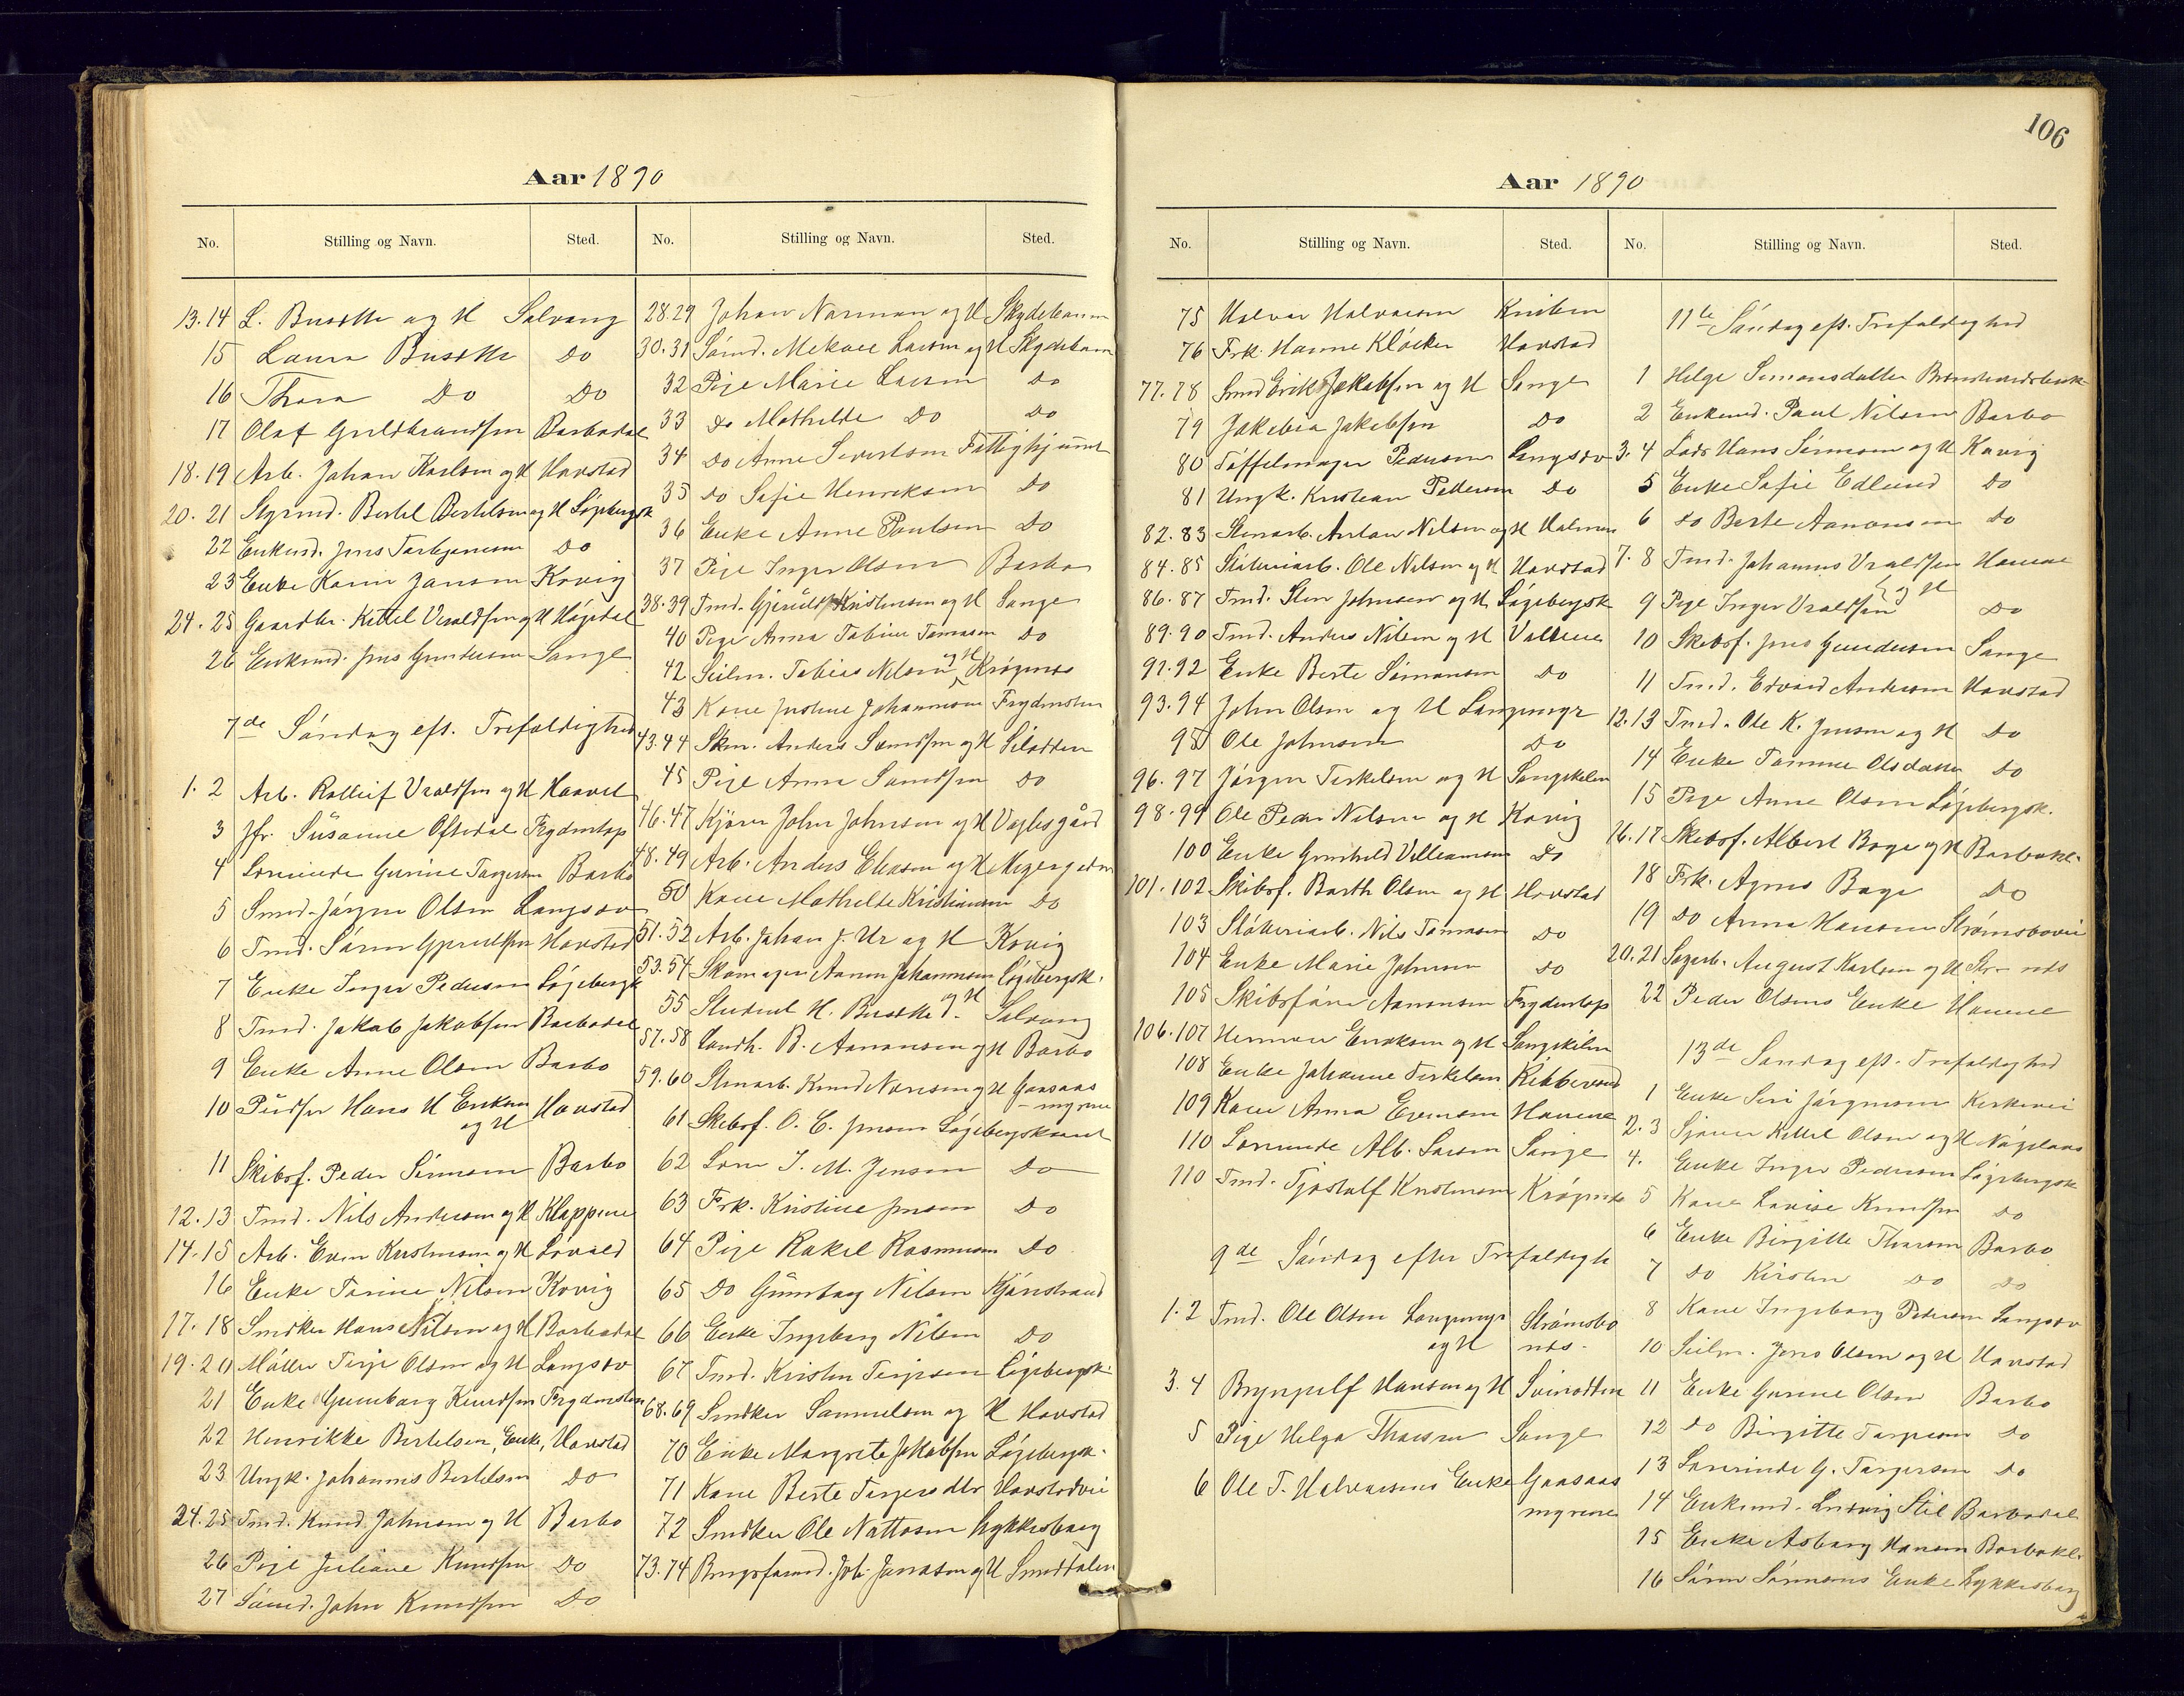 106
Aar 1890
No. Stilling og Navn. Sted.
13.14 L. Busch og H Solvang
15 Laura Do
16 Thora Do Do
17 Olaf Guldbrandsen Barbodal
18.19 Arb. Johan Karlsen og H Havstad
20.21 Bertel Bertelsen og H Løgebergsk
22 Enkmd. Jens Torbjørnsen Do
23 Enke Karen Jansen Kovig
24.25 Gaardbr. Kittel Vraldsen og H
26 Enkemd. Jens Gundersen Songe
7de Søndag eft. Trefoldighed
1.2 Arb. Rolleif Vraldsen og H
3 Jfr. Susanne Oftedal Frydentop
4 Lorminde Gurine Torgersen Barbo
5 Smed. Jørgen Olsen Langsæv
6 Tmd. Søren Havstad
7 Enke Inger Pedersen Løgebergsk
8 Tmd. Jakob Jakobsen Barbodal
9 Enke Anne Olsen Barbo
10 Hans H Eriksen Havstad
og H
11 Skibsf. Peder Sørensen Barbo
12.13 Tmd. Nils Andersen og H Klappene
14.15 Arb. Even Kristensen og H
16 Enke Tomine Nilsen Kovig
17.18 Smdker Hans Nilsen og H Barbodal
19.20 Møller Terje Olsen og H Langsæv
21 Enke Gunborg Knudsen
22 Henrikke Bertelsen, Enke, Havstad
23 Ungk. Johannes Bertelsen Do
24.25 Tmd. Knud Johnsen og H Barbo
26 Pige Juliane Knudsen Do
27 Sømd. John Knudsen Do
No. Stilling og Navn. Sted.
28.29 Johan Norman og H Skydebanen
30.31 Sømd. Mekael Larsen og H Skydebanen
32 Pige Marie Larsen Do
33 Do Mathilde Do Do
34 Do Anne Sivertsen Fattighjemmet
35 Do Sofie Henriksen Do
36 Enke Anne Paulsen Do
37 Pige Inger Olsen Barbo
38.39 Tmd. Kristensen og H Songe
40 Pige Anna Tobine Tomasen Do
42 Seilm. Tobias Nilsen og H Krøgenes
43 Kone Justine Johannesen
43.44 Skm. Anders Samdsen og H
45 Pige Anna Samdsen Do
46.47 Kjører John Johnsen og H Voglesgård
48.49 Arb. Anders Eliasen og H
50 Kone Mathilde Kristiansen Do
51.52 Arb. Johan J. Ur og H Kovig
53.54 Skomager Aanon Johannesen Løgebergsk.
og H
55 Student H. Busch Solvang
57.58 Landh. B. Aanonsen og H Barbo
59.60 Stenarb. Knud og H Gaasaas
myrene
61 Skibsf. O. C. Jensen Løgebergskaaret
62 Lorm J. M. Jensen Do
63 Frk. Kristine Jensen Do
64 Pige Rakel Rasmussen Do
65 Do Gunborg Nilsen Kjønstrand
66 Enke Ingeborg Nilsen Do
67 Tmd. Kristen Terjesen Løgebergsk.
68.69 Smdker Samuelsen og H Havstad
70 Enke Margrete Jakobsen Løgebergsk.
71 Kone Berte Torjersdtr Havstadvei
72 Smdker Ole Lykkesborg
73.74 og H Smeddalen
Aar 1890
No. Stilling og Navn. Sted.
75 Halvor Halvorsen
76 Frk. Hanne Kløcker Havstad
77.78 Smed Erik Jakobsen og H Songe
79 Jakobia Jakobsen Do
80 Tøffelmager Pedersen Langsæv
81 Ungk. Kristian Pettersen Do
82.83 Stenarb. Anton Nilsen og H
84.85 Ole Nilsen og H Havstad
86.87 Tmd. Sten Johnsen og H Løgebergsk
89.90 Tmd. Anders Nilsen og H Vollene
91.92 Enke Berte Sømonsen Do
93.94 John Olsen og H Langmyr
95 Ole Johnsen Do
96.97 Jørgen Terkelsen og H Songekilen
98.99 Ole Peder Nilsen og H Kovig
100 Enke Gunhild Villeamsen Do
101.102 Skibsf. Barth Olsen og H Havstad
103 Nils Tomasen Do
104 Enke Marie Johnsen Do
105 Skibsfører Aanonsen Frydentop
106.107 Herman Eriksen og H Songekilen
108 Enke Johanne Terkelsen
109 Kone Anna Evensen Havene
110 Lorminde Alb. Larsen Songe
110 Tmd. Tjøstolf Kristensen Krøgenes
9de Søndag efter Trefoldigh
1.2 Tmd. Ole Olsen Langmyr Strømsbo
og H nds.
3.4 Brynjulf Hansen og H Svinodden
5 Pige Helga Thorsen Songe
6 Ole T. Halvorsens Enke Gaasaas
myrene
No. Stilling og Navn. Sted.
11te Søndag eft. Trefoldighed
1 Helge Simonsdatter
2 Enkemd. Paul Nilsen Barbo
3.4 Lods Hans Sørensen og H Kovig
5 Enke Sofie Edlund Do
6 Do Berte Aanonsen Do
7.8 Tmd. Johannes Vraldsen Havene
og H
9 Pige Inger Vraldsen Do
10 Skibsf. Jens Gundersen Songe
11 Tmd. Edvard Andersen Havstad
12.13 Tmd. Ole K. Jensen og H Do
14 Enke Tomine Olsdatter Do
15 Pige Anne Olsen Løgebergsk.
16.17 Skibsf. Albert Boye og H Barbokl.
18 Frk. Agnes Boye Do
19 Do Anna Hansen Strømsbovei
20.21 Sagarb. August Karlsen og H Str- nds
22 Peder Olsens Enke Havene
13de Søndag eft. Trefoldighed
1 Enke Siri Jørgensen Kirkevei
2.3 Kittel Olsen og H
4. Enke Inger Pedersen Løgebergsk
5 Kone Lovise Knudsen Do
6 Enke Birgitte Thorsen Barbo
7 Do Kirsten Do Do
8 Kone Ingeborg Petersen Langsæv
10 Seilm. Jens Olsen og H Havstad
11 Enke Gurine Olsen Barbo
12 Do Birgitte Torjesen Do
13 Lorminde G. Torgersen Do
14 Enkemd. Ludvig Stil Barbodal
15 Enke Asborg Hansen Barbokl.
16 Søren Sørensens Enke Lykkesborg